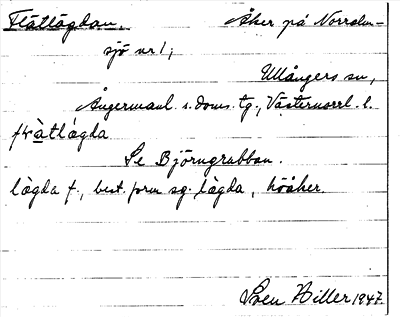 Flätlägdan. Åker på Norrdm-
sjö nr 1;
Ullångers sn,
Ångermanl. s. doms. tg., Västernorrl. l.
Se Björngrubban.
lägda f., best. form sg. lägda, höåker.
Sven Hiller 1947.